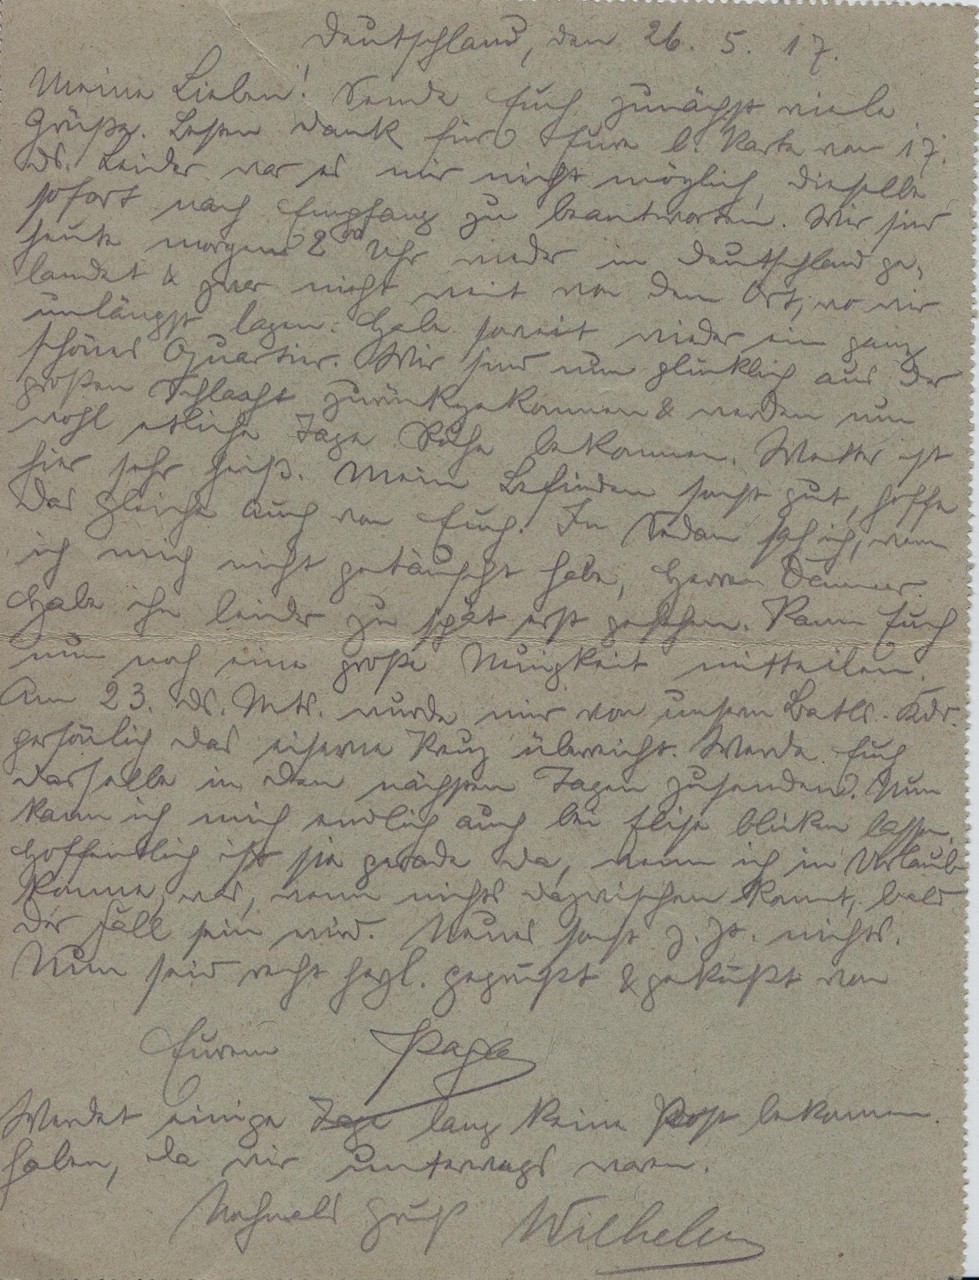 Deutschland, den 26. 5. 17.
Meine Lieben! Sende Euch zunächst viele
Grüße. Besten Dank für Eure l. Karte vom 17.
ds. Leider war es mir nicht möglich, dieselbe
sofort nach Empfang zu beantworten. Wir sind
heute morgen 8 Uhr wieder in Deutschland ge-
landet & zwar nicht weit von dem Ort, wo wir
unlängst lagen. Habe soweit wieder ein ganz
schönes Quartier. Wir sind nun glücklich aus der
großen Schlacht zurückgekommen & werden nun
wohl etliche Tage Ruhe bekommen. Wetter ist
hier sehr heiß. Mein Befinden sonst gut, hoffe
das gleiche auch von Euch. In Sedan sah ich, wenn
ich mich nicht getäuscht habe, Herrn
Habe ihn leider zu spät erst gesehen. Kann Euch
nun noch eine große Neuigkeit mitteilen.
Am 23. ds. Mts. wurde mir von unserm Batls.-Kdr.
persönlich das eiserne Kreuz überreicht. Werde Euch
dasselbe in den nächsten Tagen zusenden. Nun
kann ich mich endlich auch bei Elise blicken lassen,
hoffentlich ist sie gerade da, wenn ich in Urlaub
komme, was, wenn nichts dazwischen kommt, bald
der Fall sein wird. Neues sonst z. Zt. nichts.
Nun seid recht herzl. gegrüßt & geküßt von
Eurem Papa
Werdet einige Tage lang keine Post bekommen
haben, da wir unterwegs waren.
Nochmals Gruß Wilhelm